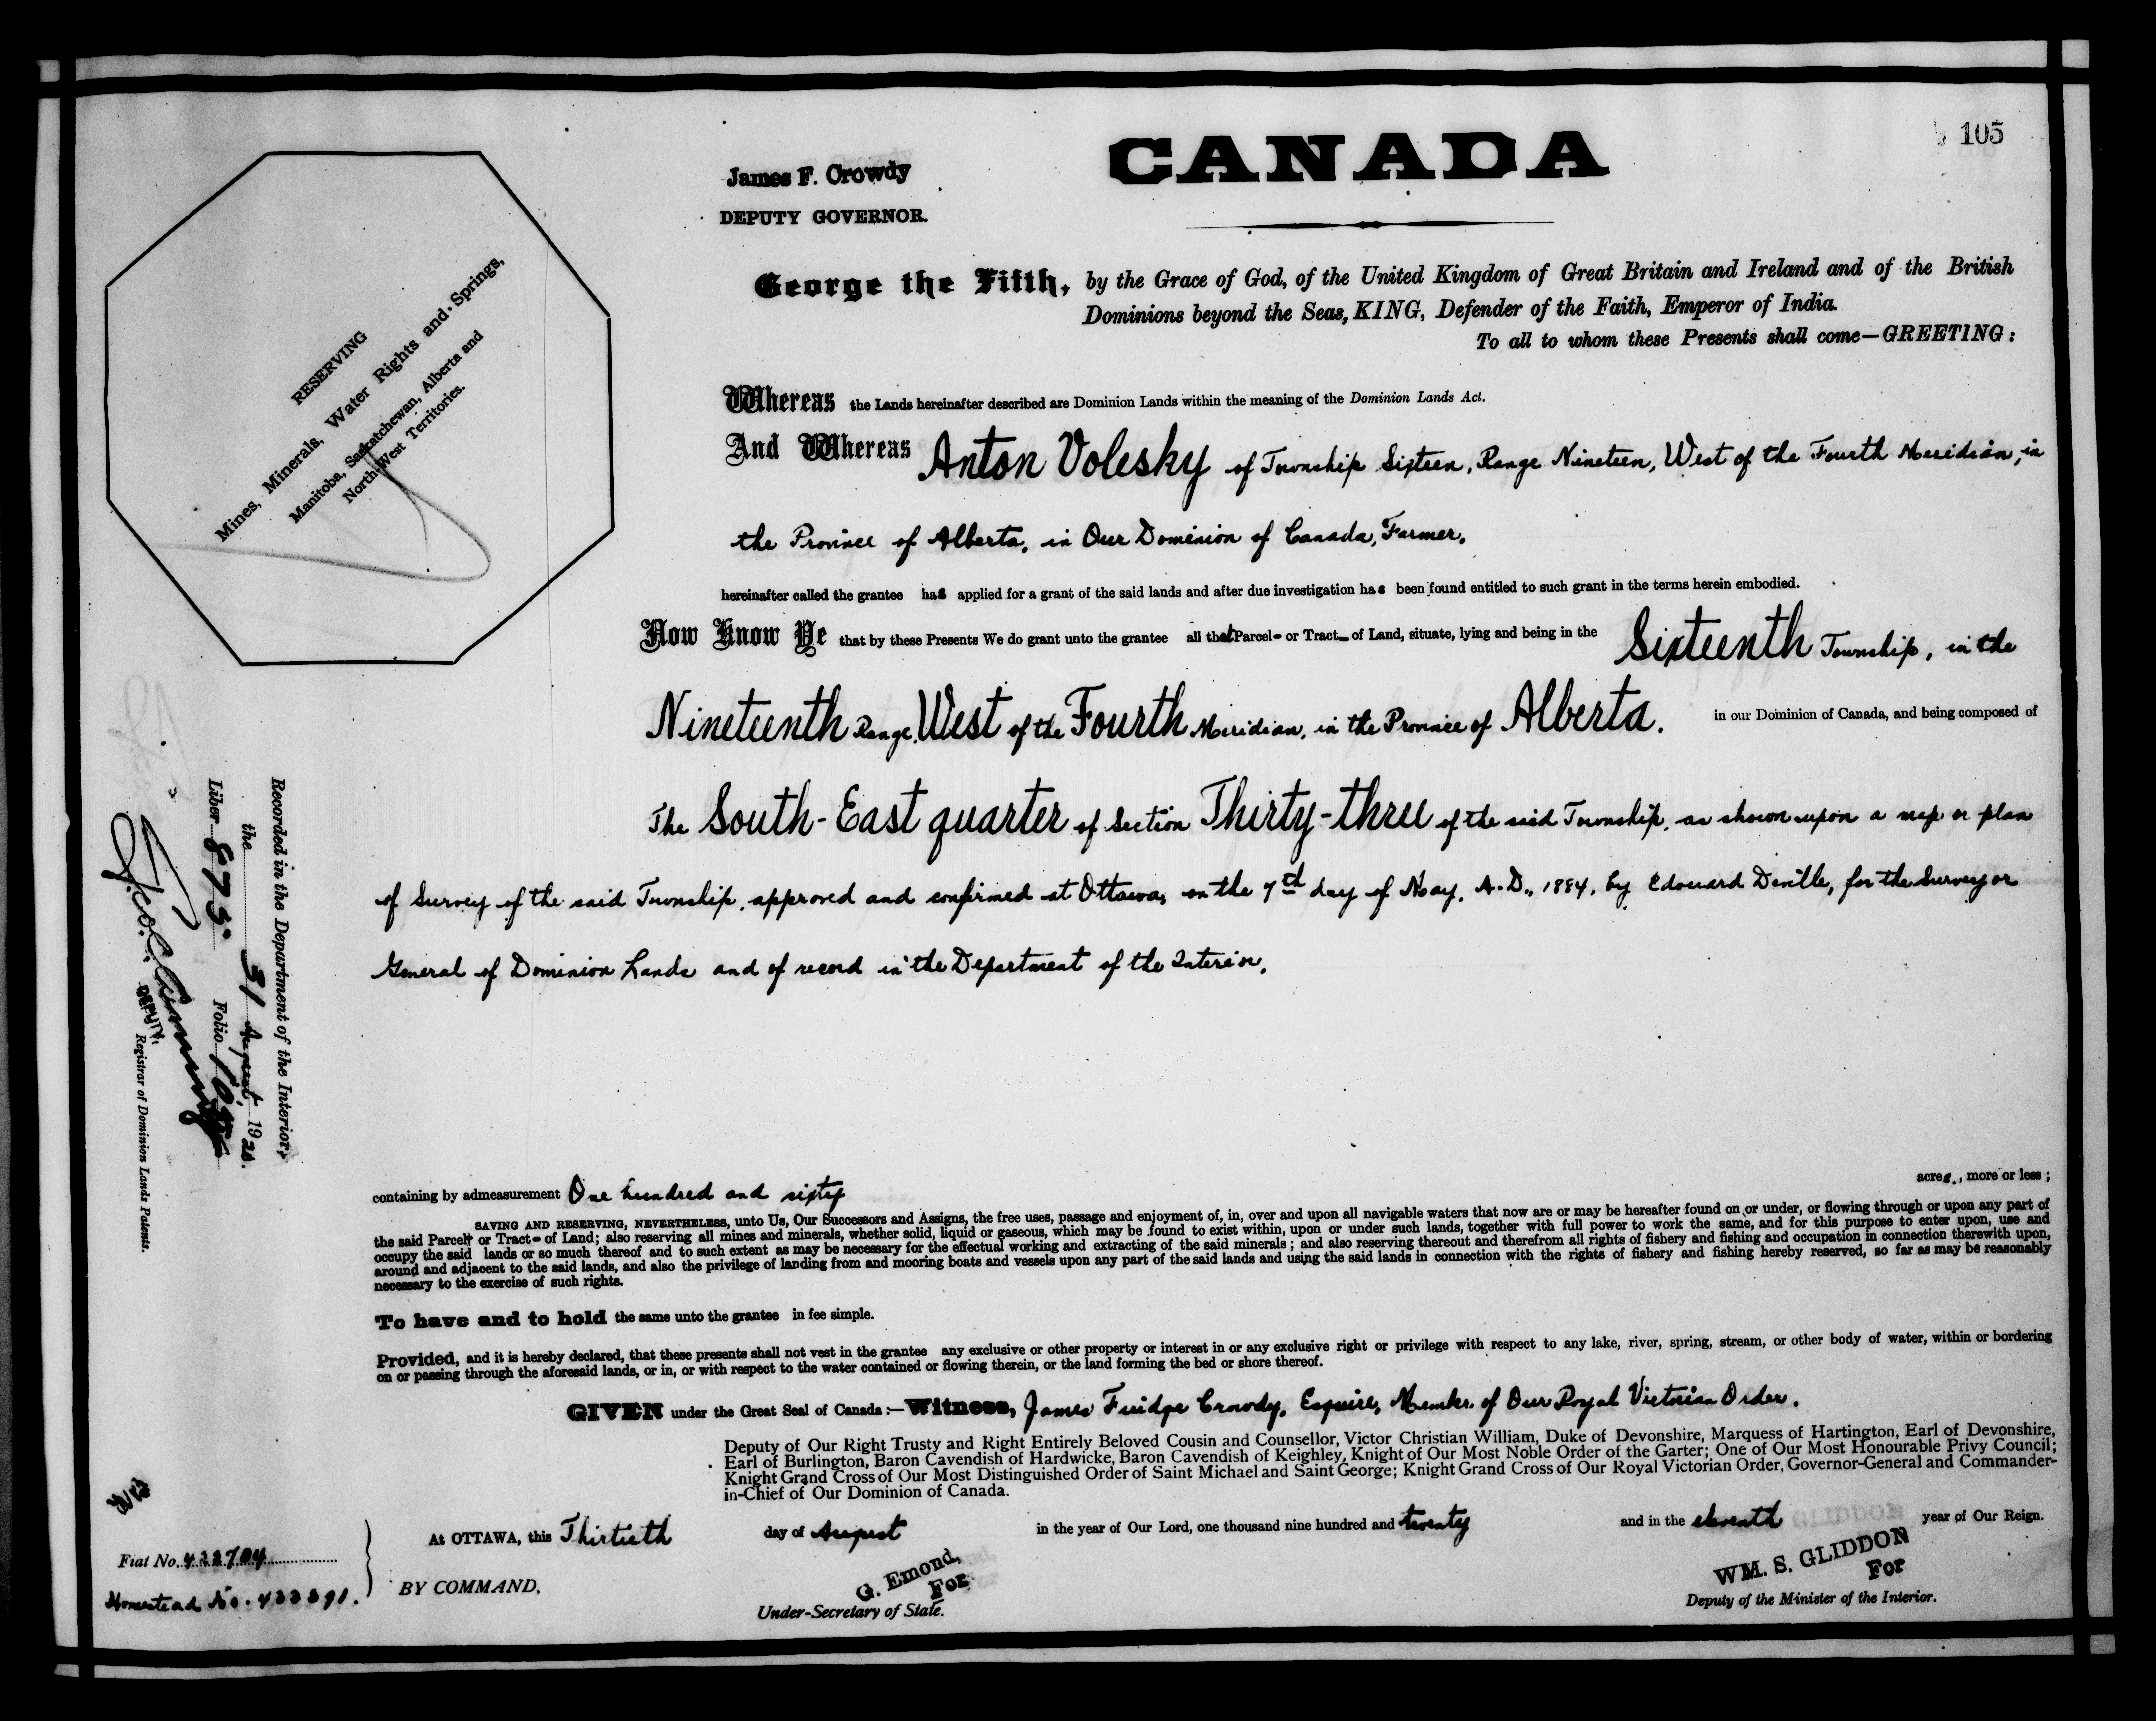 105
James F. Crowdy
DEPUTY GOVERNOR.
CANADA
RESERVING
Mines, Minerals, Water Rights and Springs,
Manitoba, Saskatchewan, Alberta and
North West Territories.
George the Fifth, by the Grace of God, of the United Kingdom of Great Britain and Ireland and of the British
Dominions beyond the Seas, KING, Defender of the Faith, Emperor of India.
To all to whom these Presents shall come—GREETING:
Whereas the Lands hereinafter described are Dominion Lands within the meaning of the Dominion Lands Act.
And Whereas Anton Volesky of Township Sixteen, Range Nineteen, West of the Fourth Meridian, in
the Province of Alberta, in Our Dominion of Canada, Farmer,
hereinafter called the grantee has applied for a grant of the said lands and after due investigation has been found entitled to such grant in the terms herein embodied.
Now Know Ye that by these Presents We do grant unto the grantee all that Parcel or Tract of Land, situate, lying and being in the Sixteenth Township, in the
Nineteenth Range, West of the Fourth Meridian, in the Province of Alberta. in our Dominion of Canada, and being composed of
The South-East quarter of Section Thirty-three of the said Township, as shown upon a map or plan
of Survey of the said Township, approved and confirmed at Ottawa, on the 7th day of May, A.D., 1884, by Edouard Deville, for the Surveyor
General of Dominion Lands and of record in the Department of the Interior,
Recorded in the Department of the Interior,
the 31 August 1920.
Liber 875. Folio 105
DEPUTY
Registrar of Dominion Lands Patents.
containing by admeasurement One hundred and sixty acres, more or less;
SAVING AND RESERVING, NEVERTHELESS, unto Us, Our Successors and Assigns, the free uses, passage and enjoyment of, in, over and upon all navigable waters that now are or may be hereafter found on or under, or flowing through or upon any part of
the said Parcel or Tract of Land; also reserving all mines and minerals, whether solid, liquid or gaseous, which may be found to exist within, upon or under such lands, together with full power to work the same, and for this purpose to enter upon, use and
occupy the said lands or so much thereof and to such extent as may be necessary for the effectual working and extracting of the said minerals; and also reserving thereout and therefrom all rights of fishery and fishing and occupation in connection therewith upon,
around and adjacent to the said lands, and also the privilege of landing from and mooring boats and vessels upon any part of the said lands and using the said lands in connection with the rights of fishery and fishing hereby reserved, so far as may be reasonably
necessary to the exercise of such rights.
To have and to hold the same unto the grantee in fee simple.
Provided, and it is hereby declared, that these presents shall not vest in the grantee any exclusive or other property or interest in or any exclusive right or privilege with respect to any lake, river, spring, stream, or other body of water, within or bordering
on or passing through the aforesaid lands, or in, or with respect to the water contained or flowing therein, or the land forming the bed or shore thereof.
GIVEN under the Great Seal of Canada:—Witness, James Fuidge Crowdy, Esquire, Member of Our Royal Victorian Order.
Deputy of Our Right Trusty and Right Entirely Beloved Cousin and Counsellor, Victor Christian William, Duke of Devonshire, Marquess of Hartington, Earl of Devonshire,
Earl of Burlington, Baron Cavendish of Hardwicke, Baron Cavendish of Keighley, Knight of Our Most Noble Order of the Garter; One of Our Most Honourable Privy Council;
Knight Grand Cross of Our Most Distinguished Order of Saint Michael and Saint George; Knight Grand Cross of Our Royal Victorian Order, Governor-General and Commander-
in-Chief of Our Dominion of Canada.
At OTTAWA, this Thirtieth day of August in the year of Our Lord, one thousand nine hundred and twenty and in the eleventh year of Our Reign.
Fiat No. 432704
Homestead No. 433391.
BY COMMAND,
G. Emond,
For
Under-Secretary of State.
WM. S. GLIDDON
For
Deputy of the Minister of the Interior.